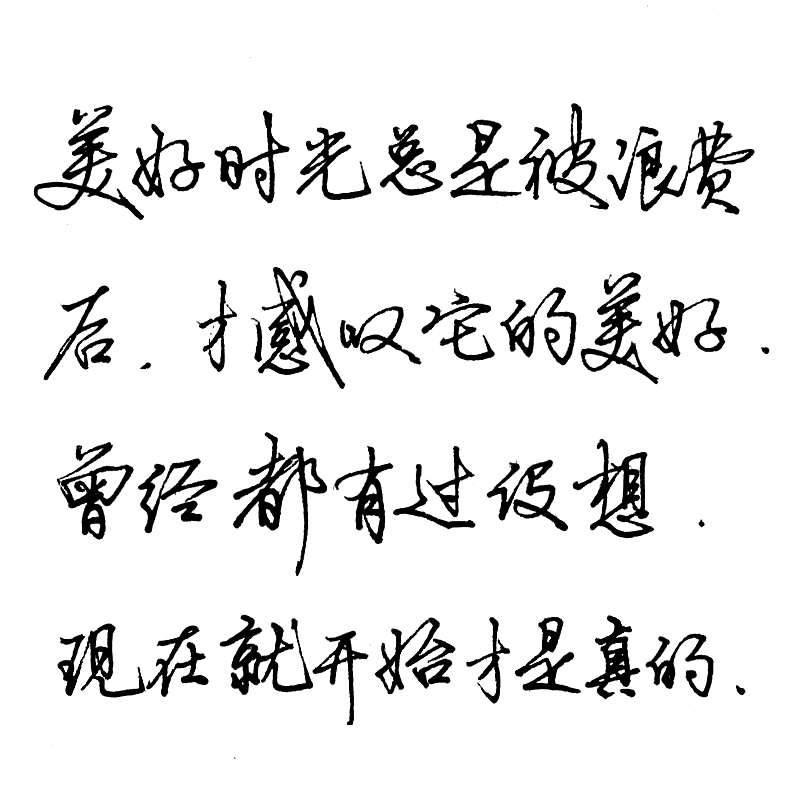 美好时光总是被浪费
后.才感叹它的美好.
曾经都有过设想.
现在就开始才是真的.